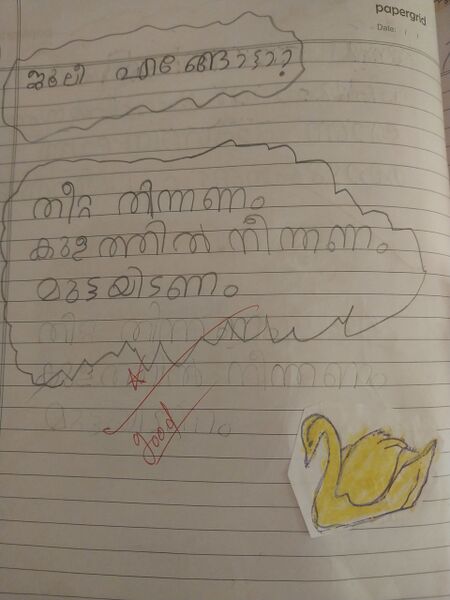 papergrid
Date: / /
എങ്ങോട്ടാ?
തീറ്റ തിന്നണം
കുളത്തിൽ നീന്തണം
മുട്ടയിടണം
good